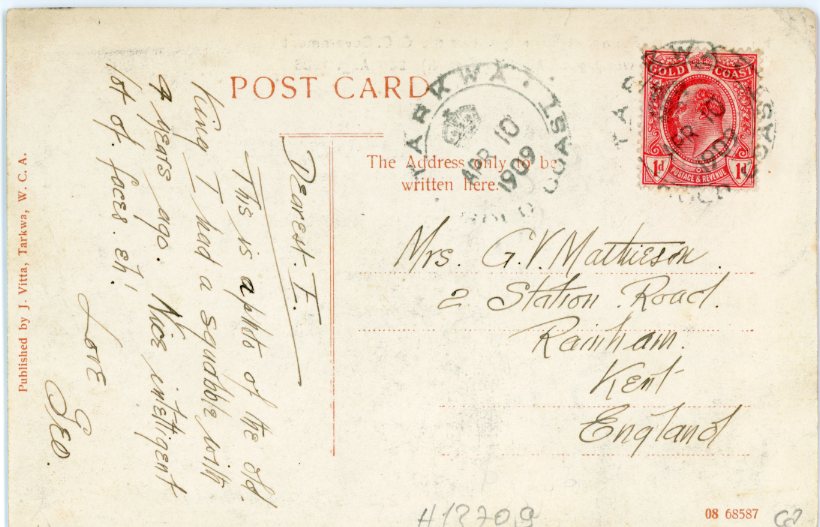 POST CARD
TARKWA · GOLD COAST
APR 10
1909
TARKWA
GOLD COAST
APR 10
1909
GOLD COAST
1d POSTAGE & REVENUE 1d
The Address only to be
written here.
Dearest. E.
This is a photo of the old
King I had a squabble with
4 years ago. Nice intelligent
lot of. faces. eh'.
Love
Geo.
Mrs. G. V. Mathieson.
2 Station Road.
Rainham.
Kent
England
Published by J. Vitta, Tarkwa, W. C. A.
H13709
08 68587